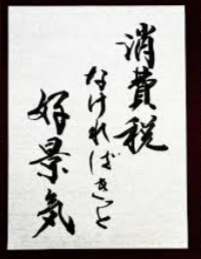 消費税
なければきっと
好景気